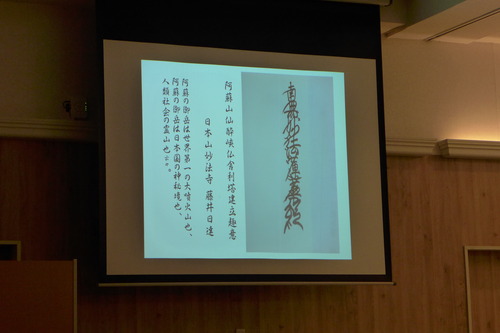 南無妙法蓮華経
阿蘇山仙酔峡仏舎利塔建立趣意
日本山妙法寺 藤井日達
阿蘇の御岳は世界第一の大噴火山也、
阿蘇の御岳は日本国の神秘境也、
人類社会の霊山也